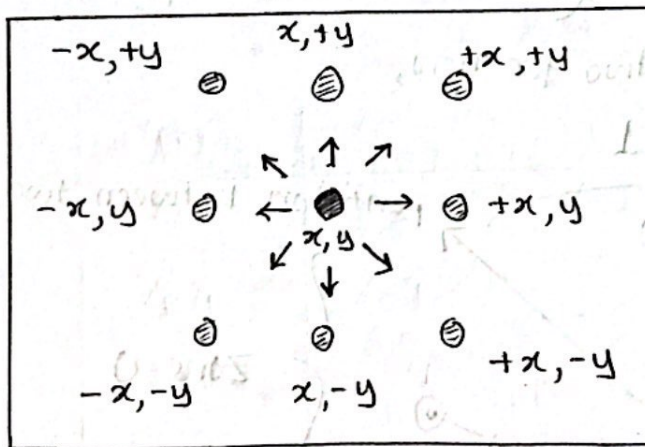 -x,+y x,+y +x,+y
-x,y x,y +x,y
-x,-y x,-y +x,-y